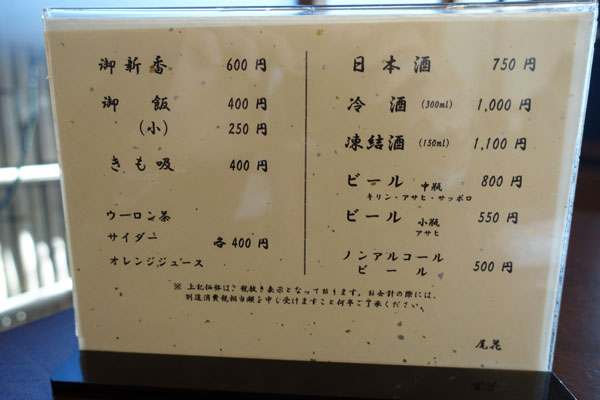 御新香 600円
御飯 400円
(小) 250円
きも吸 400円
ウーロン茶
サイダー 各400円
オレンジジュース
日本酒 750円
冷酒 (300ml) 1,000円
凍結酒 (150ml) 1,100円
ビール 中瓶 800円
キリン・アサヒ・サッポロ
ビール 小瓶 550円
アサヒ
ノンアルコール
ビール 500円
※ 上記価格はご税抜き表示となっております。お会計の際には、
別途消費税相当額を申し受けますこと何卒ご了承ください。
尾花